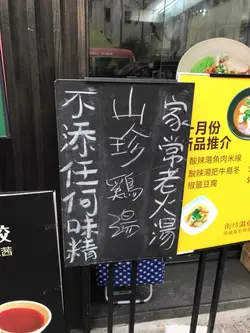 家常老火湯
山珍鷄湯
不添任何味精
一月份
新品推介
酸辣湯魚肉米線
酸辣湯肥牛烏冬
椒鹽豆腐